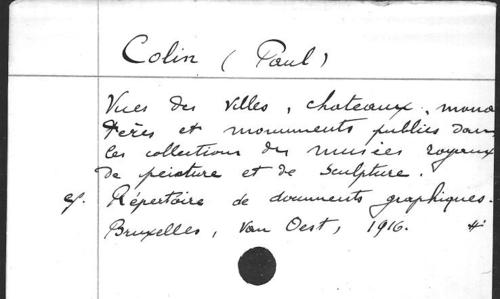 Colin (Paul)
Vues des villes, chateaux, monas
tères et monuments publics dans
les collections des musées royaux
de peinture et de sculpture.
cf. Répertoire de documents graphiques.
Bruxelles, Van Oest, 1916.